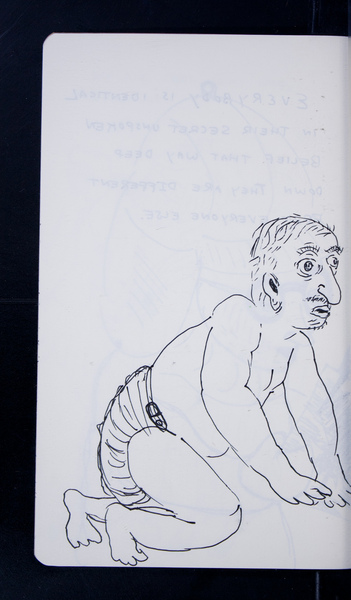 EVERYBODY IS IDENTICAL
IN THEIR SECRET UNSPOKEN
BELIEF THAT WAY DEEP
DOWN THEY ARE DIFFERENT
EVERYONE ELSE.